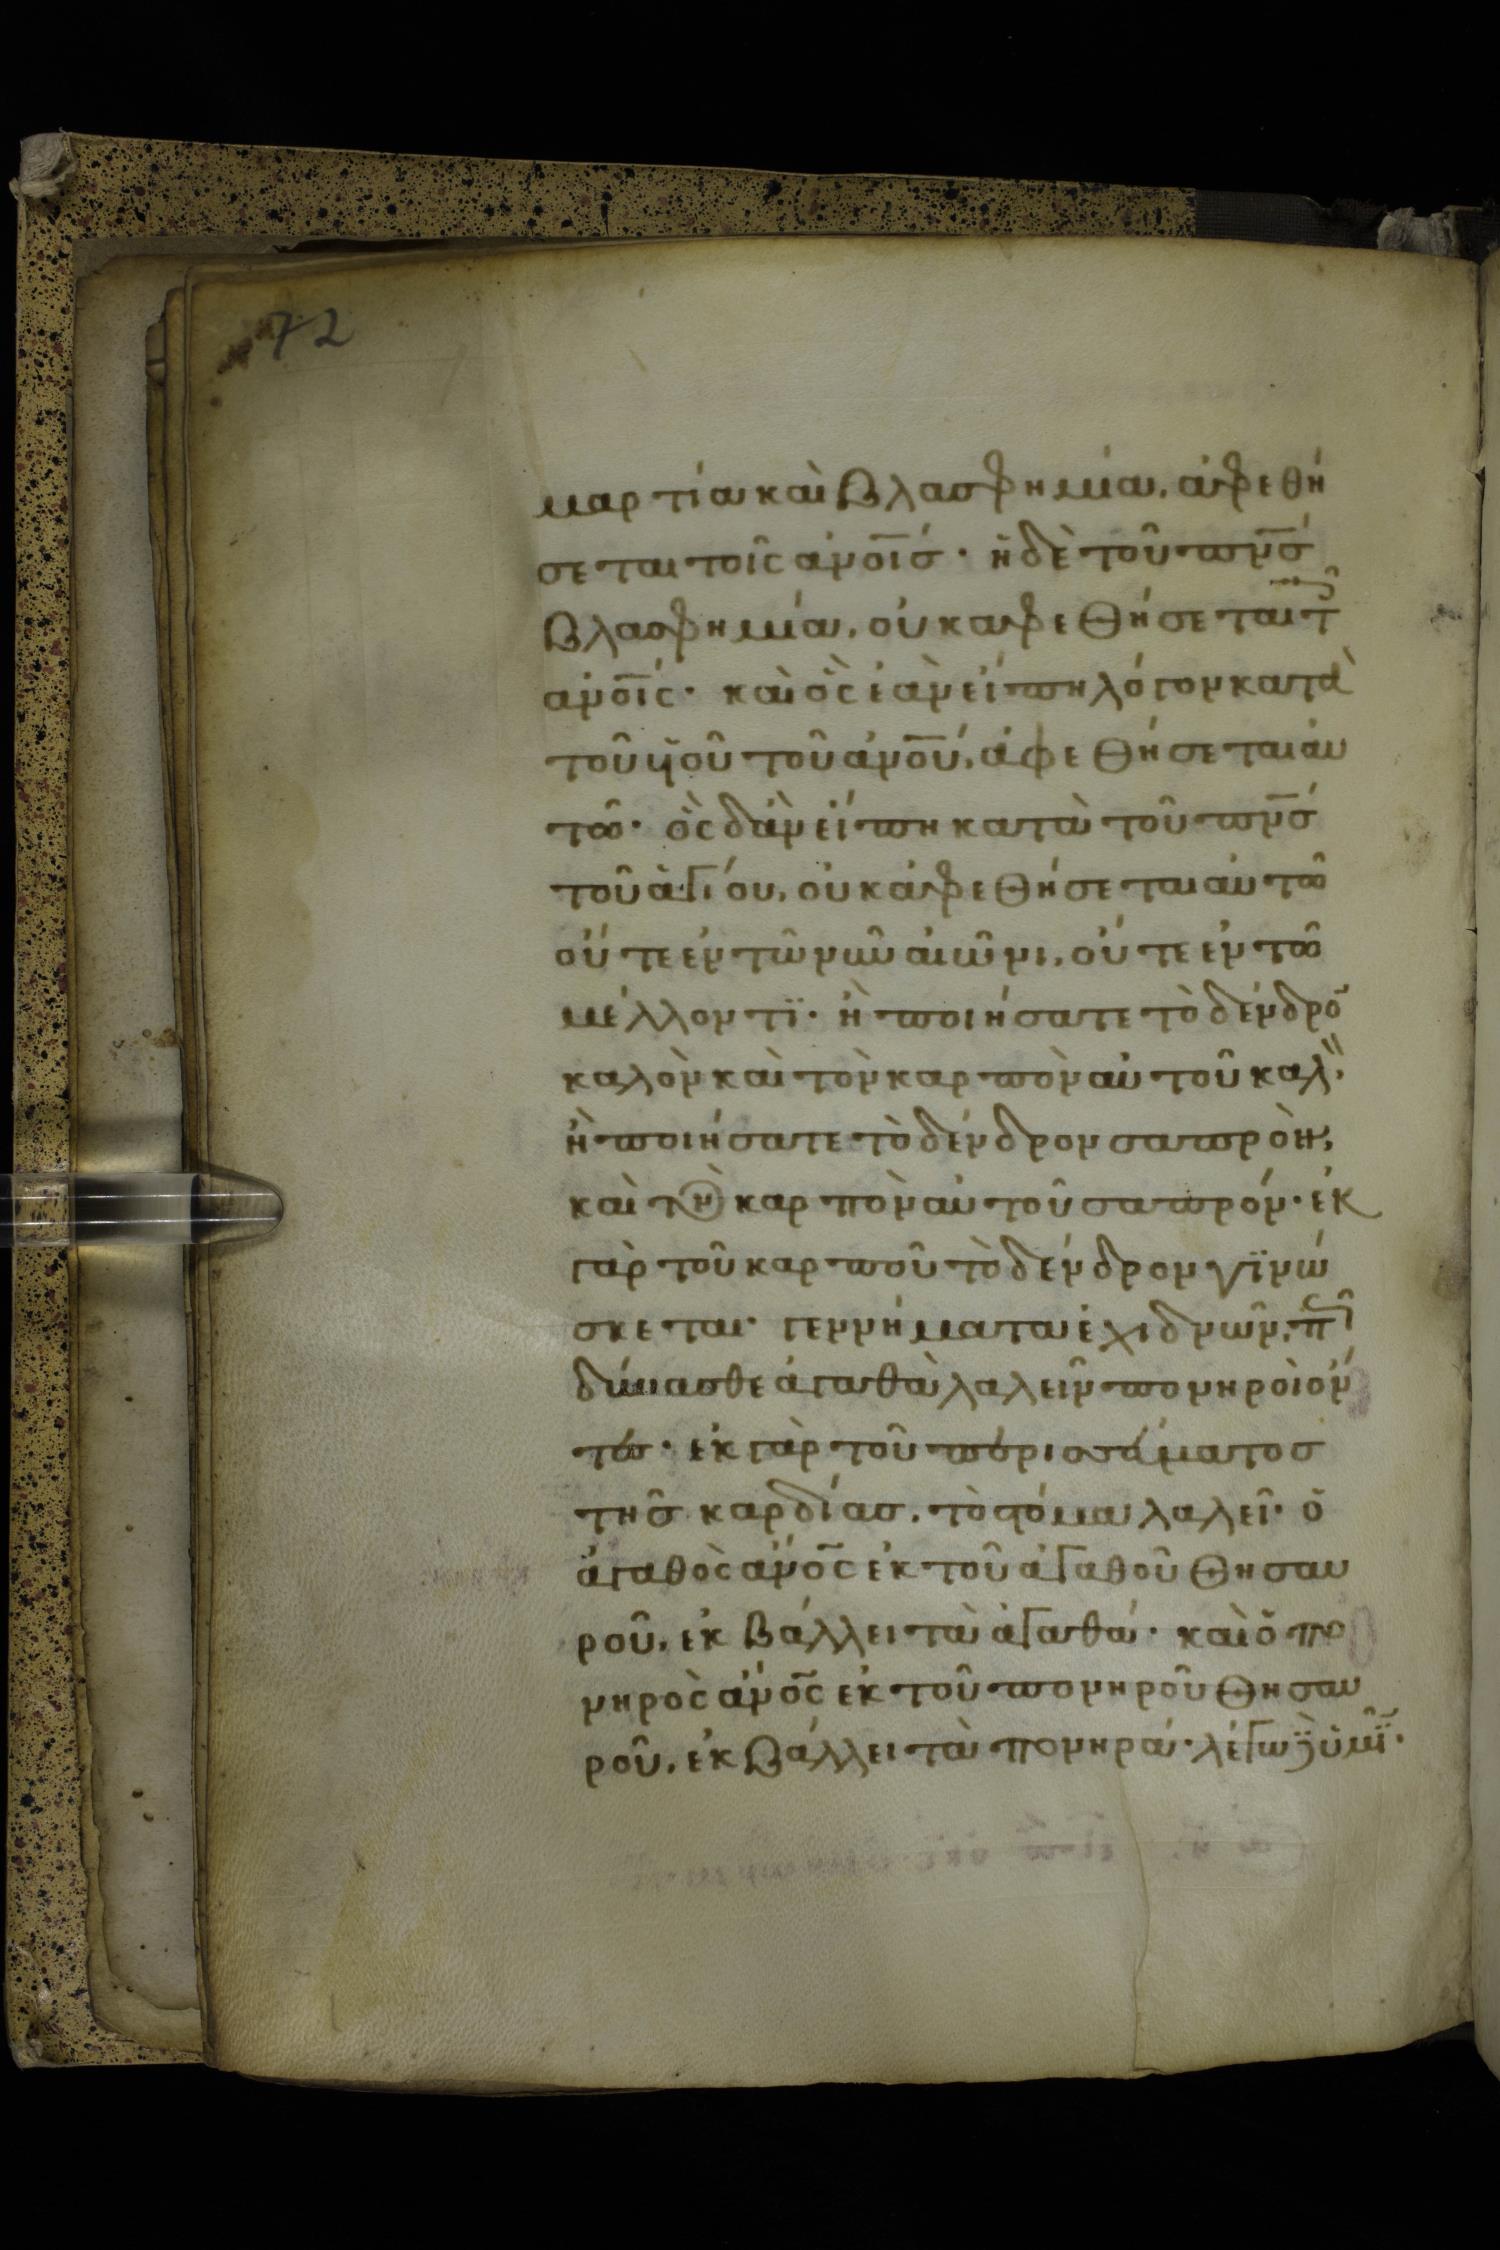 72
μαρτία καὶ βλασφημία, ἀφεθή
σεται τοῖς ἀνοῖς· ἡ δὲ τοῦ πνς
βλασφημία, οὐκ ἀφεθήσεται τ
ἀνοῖς· καὶ ὃς ἐὰν εἴπη λόγον κατὰ
τοῦ υἱοῦ τοῦ ἀνου, ἀφεθήσεται αυ
τῶ· ὃς δ' ἂν εἴπη κατὰ τοῦ πνς
τοῦ ἁγίου, οὐκ ἀφεθήσεται αὐτῶ
οὔτε ἐν τῶ νῦν αἰῶνι, οὔτε ἐν τῶ
μέλλοντϊ· ἢ ποιήσατε τὸ δένδρο
καλὸν καὶ τὸν καρπὸν αὐτοῦ καλ,
ἢ ποιήσατε τὸ δένδρον σαπρὸν,
καὶ τὸν καρπὸν αὐτοῦ σαπρόν· ἐκ
γὰρ τοῦ καρποῦ τὸ δένδρον γϊνώ
σκεται· γεννήματα ἐχιδνῶν, π
δύνασθε ἀγαθὰ λαλεῖν πονηροὶ ὄν
τες· ἐκ γὰρ τοῦ περισσεύματος
τῆς καρδίας, τὸ στόμα λαλεῖ· ὁ
ἀγαθὸς ἄνος ἐκ τοῦ ἀγαθοῦ θησαυ
ροῦ, ἐκβάλλει τὰ ἀγαθά· καὶ ὁ πο
νηρὸς ἄνος ἐκ τοῦ πονηροῦ θησαυ
ροῦ, ἐκβάλλει τὰ πονηρά· λέγω δὲ ὑμῖ·